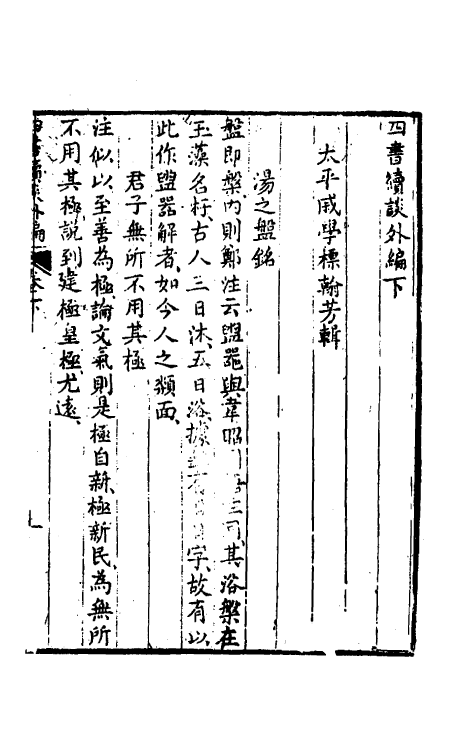 四書續談外編下
太平戚學標翰芳輯
湯之盤銘
盤即槃內則鄭注云盥器與韋昭同其浴槃在
玉藻名杅古人三日沐五日浴據字故有以
此作盥器解者如今人之頮面
君子無所不用其極
注似以至善為極論文氣則是極自新極新民為無所
不用其極說到建極皇極尤遠